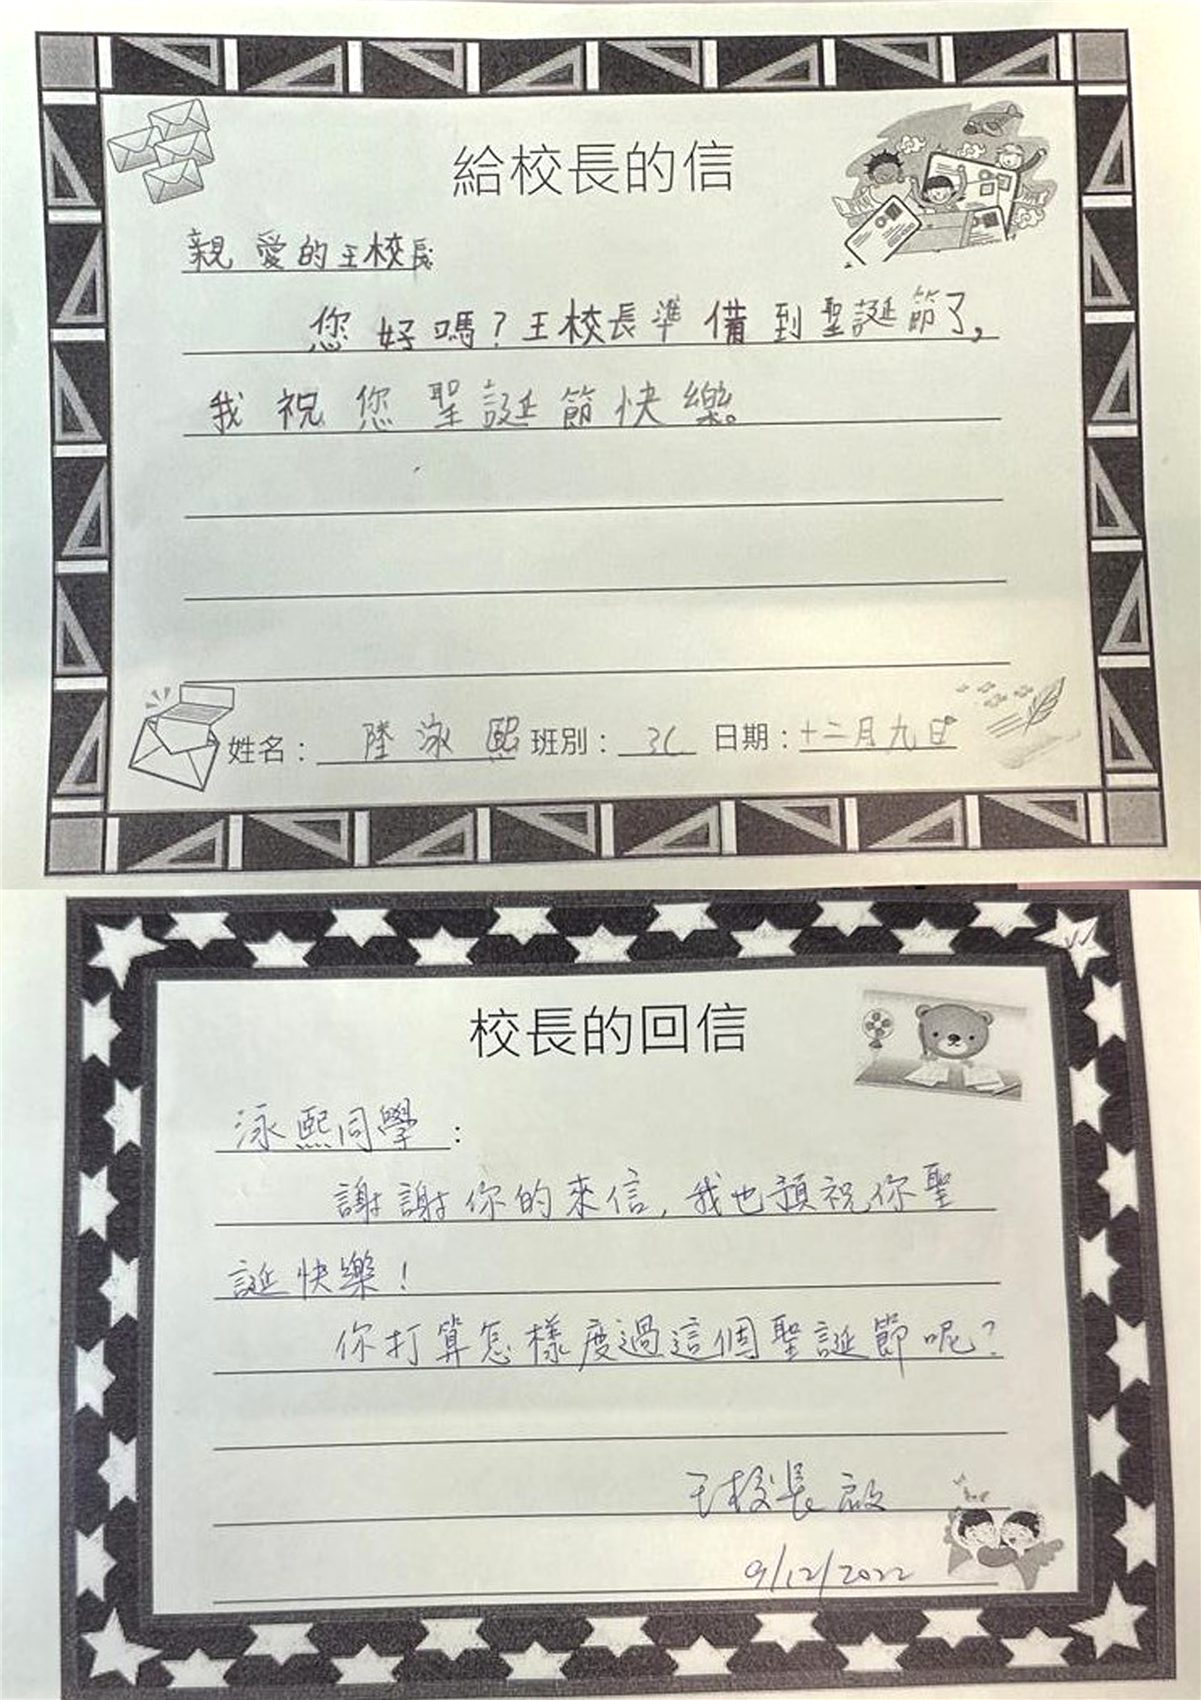 給校長的信
親愛的王校長
您好嗎？王校長準備到聖誕節了，
我祝您聖誕節快樂。
姓名：陸泳熙 班別：3C 日期：十二月九日
校長的回信
泳熙同學：
謝謝你的來信，我也預祝你聖
誕快樂！
你打算怎樣度過這個聖誕節呢？
王校長啟
9/12/2022